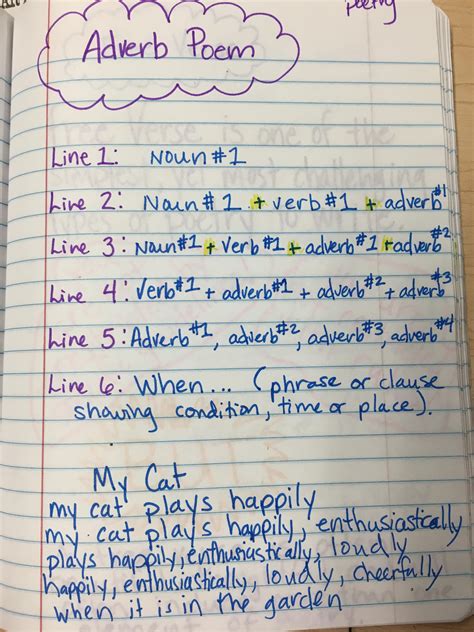 poetry
Adverb Poem
Line 1: Noun #1
Line 2: Noun #1 + verb #1 + adverb #1
Line 3: Noun #1 + verb #1 + adverb #1 + adverb #2
Line 4: Verb #1 + adverb #1 + adverb #2 + adverb #3
Line 5: Adverb #1, adverb #2, adverb #3, adverb #4
Line 6: When... (phrase or clause
showing condition, time or place).
My Cat
my cat plays happily
my cat plays happily, enthusiastically
plays happily, enthusiastically, loudly
happily, enthusiastically, loudly, cheerfully
when it is in the garden